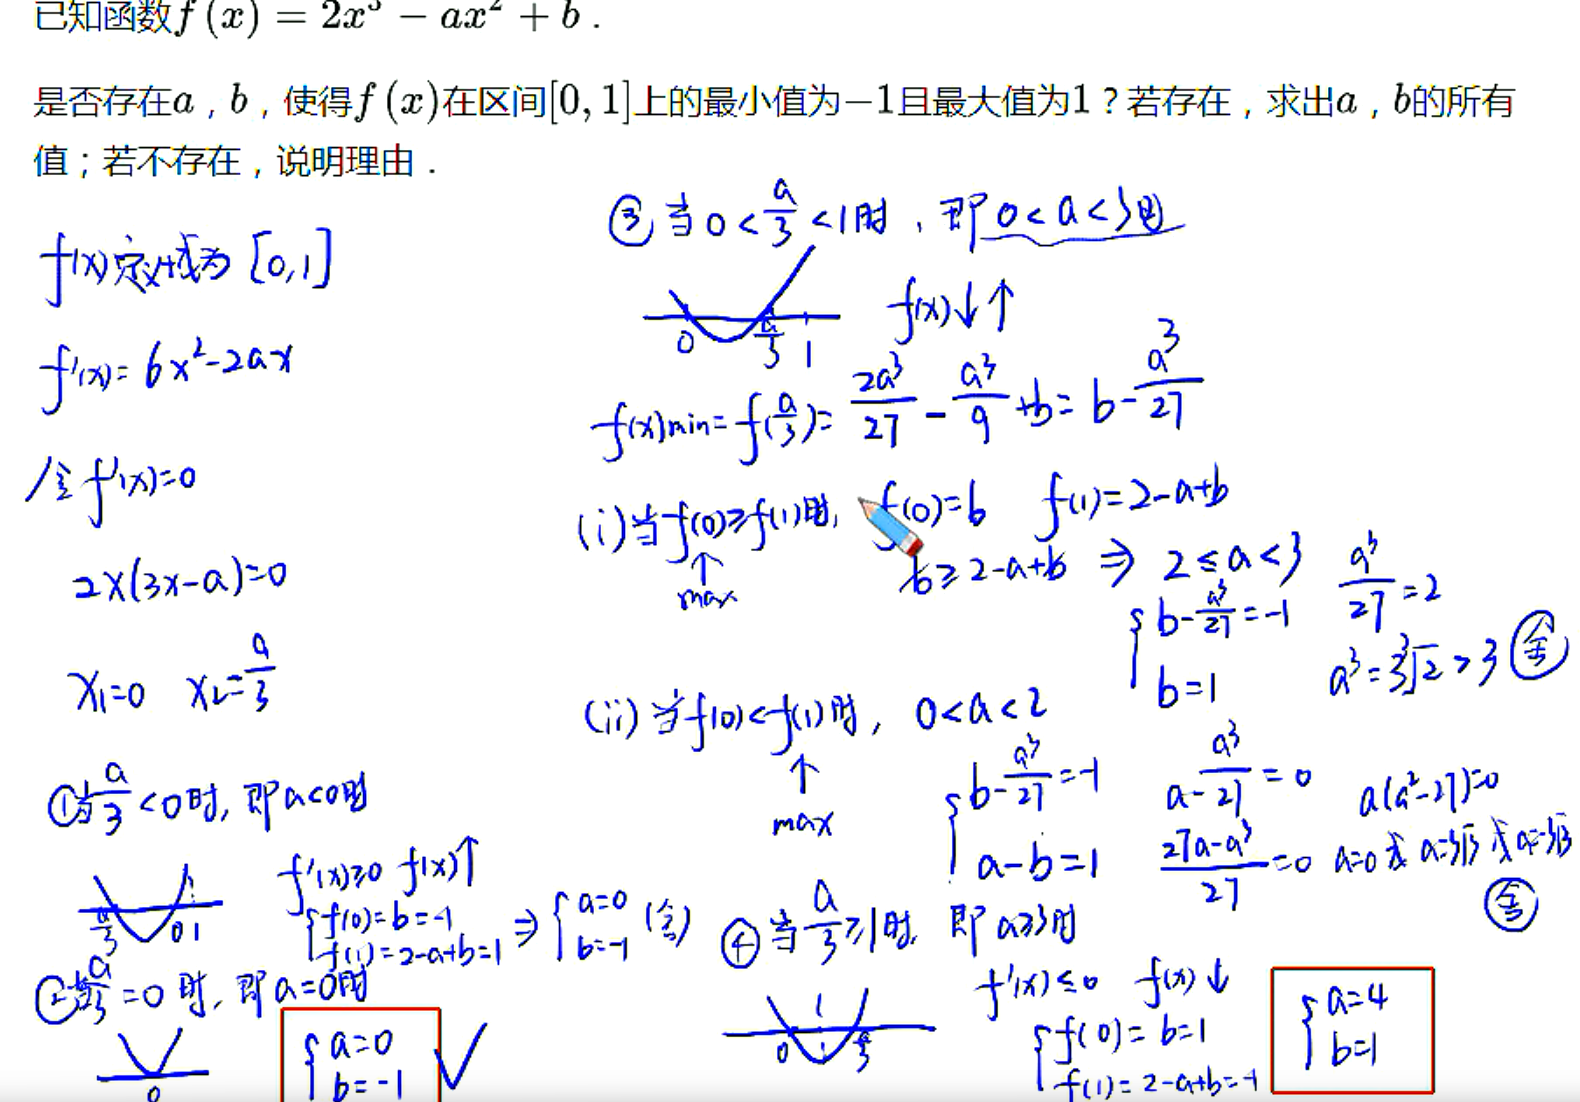 已知函数f(x) = 2x³ − ax² + b．
是否存在a，b，使得f(x)在区间[0,1]上的最小值为−1且最大值为1？若存在，求出a，b的所有
值；若不存在，说明理由．
f(x)定义域为 [0,1]
f'(x)= 6x²-2ax
令 f'(x)=0
2x(3x-a)=0
x₁=0 x₂=a/3
①当 a/3 <0时, 即a<0时
a/3 0 1
f'(x)≥0 f(x)↑
{f(0)=b=-1
f(1)=2-a+b=1 ⇒ {a=0
b=-1 (舍)
②当 a/3 =0 时, 即 a=0时
0
{a=0
b=-1 ✓
③当 0< a/3 <1时, 即 0<a<3时
0 a/3 1
f(x)↓↑
f(x)min= f(a/3)= 2a³/27 - a³/9 +b= b- a³/27
(i)当 f(0)≥f(1)时, f(0)=b f(1)=2-a+b
↑
max
b≥2-a+b ⇒ 2≤a<3
{b- a³/27 =-1
b=1
a³/27 =2
a³=3∛2>3 舍
(ii)当f(0)<f(1)时, 0<a<2
↑
max
{b- a³/27 =-1
a-b=1
a- a³/27 =0
27a-a³/27 =0
a(a²-27)=0
a=0 或 a=3√3 或 a=-3√3
舍
④当 a/3 ≥1时, 即 a≥3时
0 1 a/3
f'(x)≤0 f(x)↓
{f(0)= b=1
f(1)= 2-a+b=-1
{a=4
b=1